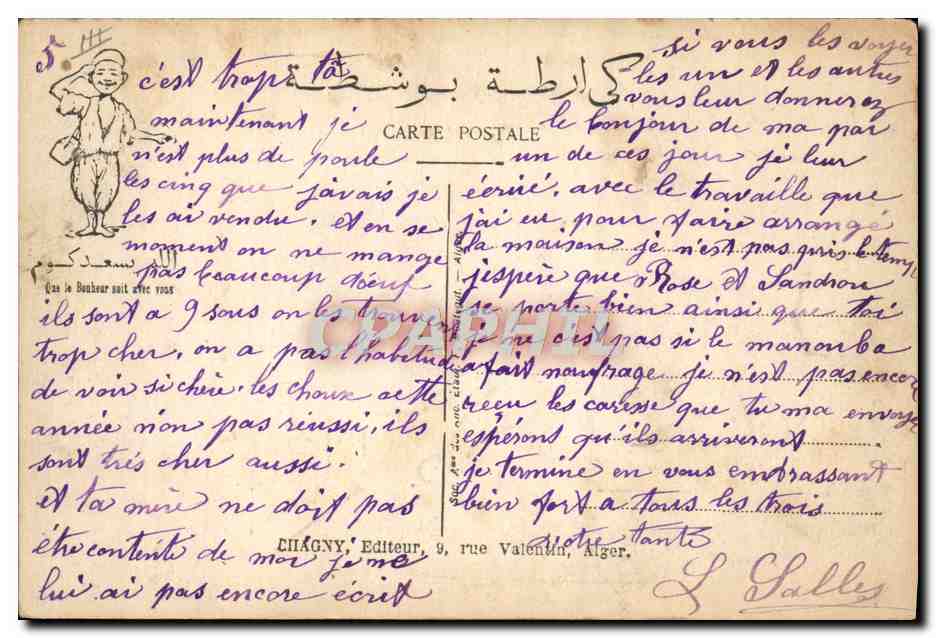 5
III
c'est trop tôt
maintenant je
n'est plus de poule
les cinq que javais je
les ai vendu. et en se
moment on ne mange
pas beaucoup d'oeuf
ils sont a 9 sous on les trouvent
trop cher, on a pas l'habitude
de voir si chère. les choux cette
année n'on pas réussi, ils
sont trés cher aussi.
et ta mère ne doit pas
étre contente de moi je ne
lui ai pas encore écrit
كارطة بوشطة
CARTE POSTALE
الله يسعدكوم
Que le Bonheur soit avec vous
si vous les voyer
les un et les autres
vous leur donnerez
le bonjour de ma par
un de ces jour je leur
écriré. avec le travaille que
j'ai eu pour faire arrangé
la maison je n'est pas pris le temps
j'espère que Rose et Sandrou
se porte bien ainsi que toi
je ne c'est pas si le manouba
a fait naufrage je n'est pas encore
reçu les caresse que tu ma envoyé
espérons qu'ils arriveront
je termine en vous embrassant
bien fort a tous les trois
votre tante
L Salles
CHAGNY, Editeur, 9, rue Valentin, Alger.
CPAPHIL